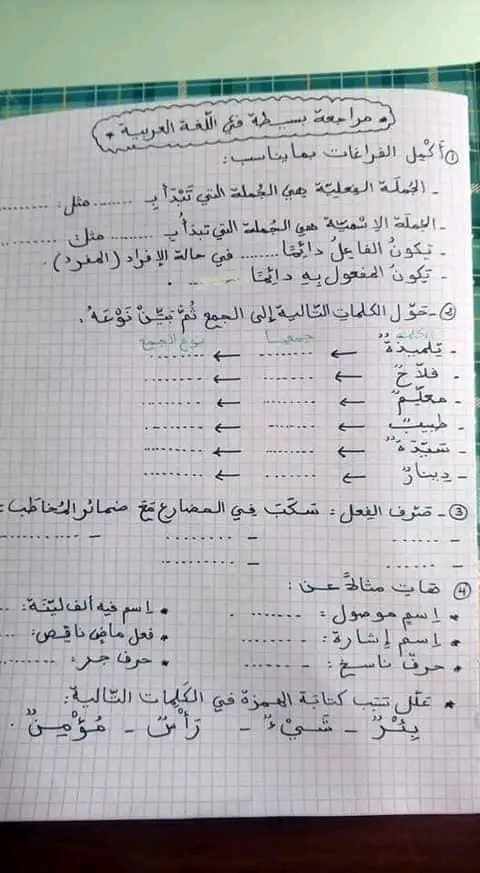 * مراجعة بسيطة في اللّغة العربية *
① أَكْمِل الفراغات بما يناسب:
- الجُملَة الفِعليّة هي الجُملة التي تَبْدَأ بـ ........ مثل: ........
- الجُملَة الاِسْميّة هي الجُملة التي تبدَأُ بـ ........ مثل ........
- يكونُ الفَاعِلُ دائِمًا ........ في حالة الإفراد (المفرد)
- يَكونُ المفعول بِهِ دائِمًا ........ .
② - حَوِّل الكلمات التّالية إلى الجمع ثُمَّ بَيِّنْ نَوْعَهُ.
الكلمة جمعها نوع الجمع
- تِلميذَةٌ ← ........ ← ........
- فلاّحٌ ← ........ ← ........
- معلِّمٌ ← ........ ← ........
- طبيبٌ ← ........ ← ........
- سَيِّدَةٌ ← ........ ← ........
- دِينارٌ ← ........ ← ........
③ - صَرِّف الفِعل: سَكَبَ فِي المضارع مَعَ ضمائر المُخاطَب:
........ - ........ - ........ -
........ - ........
④ هات مثالاً عن:
* اِسم موصول: ........ * اِسم فيه ألف ليّنَة: ..
* اِسم إشارة: ........ * فعل ماضٍ ناقِص: ....
* حرف ناسخ: ........ * حرف جر: ........
* عَلِّل سَبَب كتابَة الهمزة في الكَلِمات التّالية:
بِئْرٌ - شَيْءٌ - رَأْسٌ - مُؤْمِنٌ.